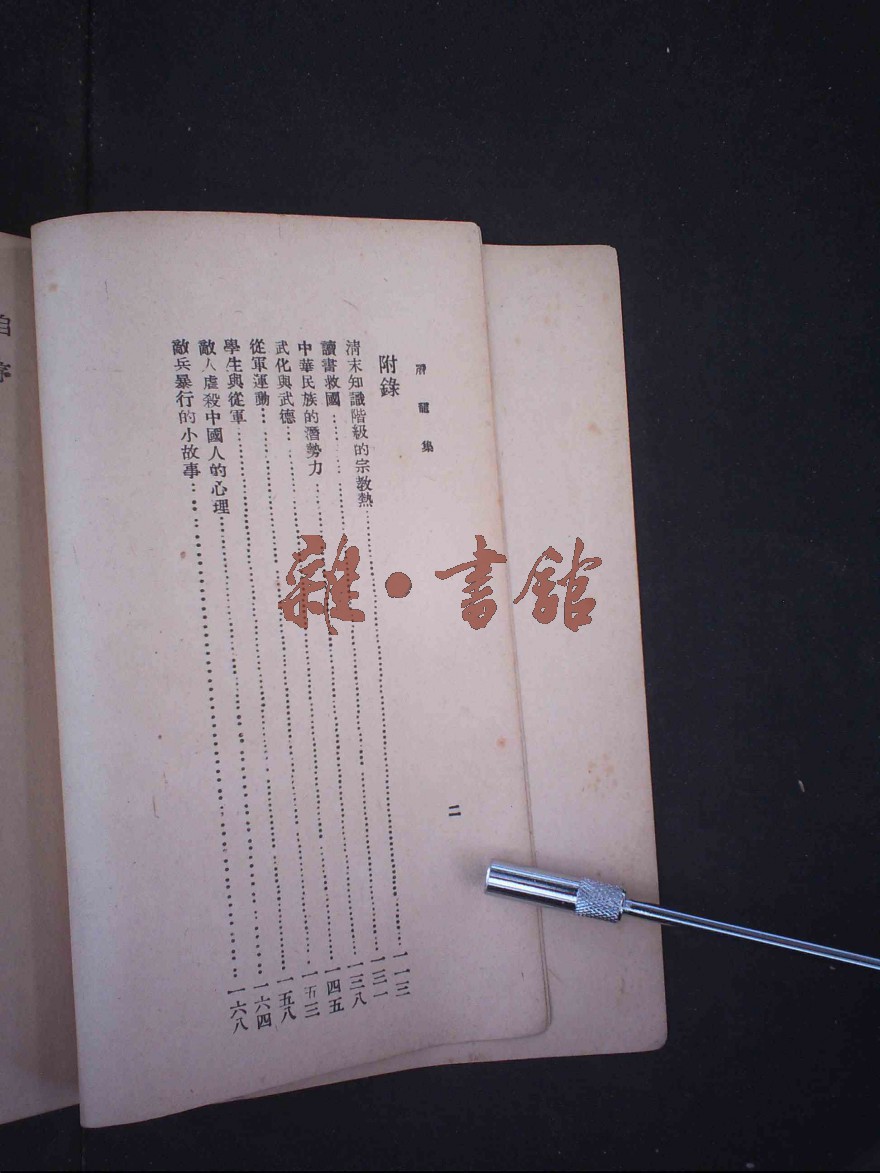 潛龍集
二
附錄
清末知識階級的宗教熱……一一三
讀書救國……一三一
中華民族的潛勢力……一三八
武化與武德……一四五
從軍運動……一五三
學生與從軍……一五八
敵人虐殺中國人的心理……一六四
敵兵暴行的小故事……一六八
自序
雜·書館